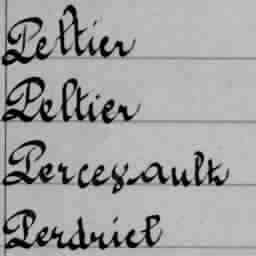 Peltier
Peltier
Percevault
Perdriel